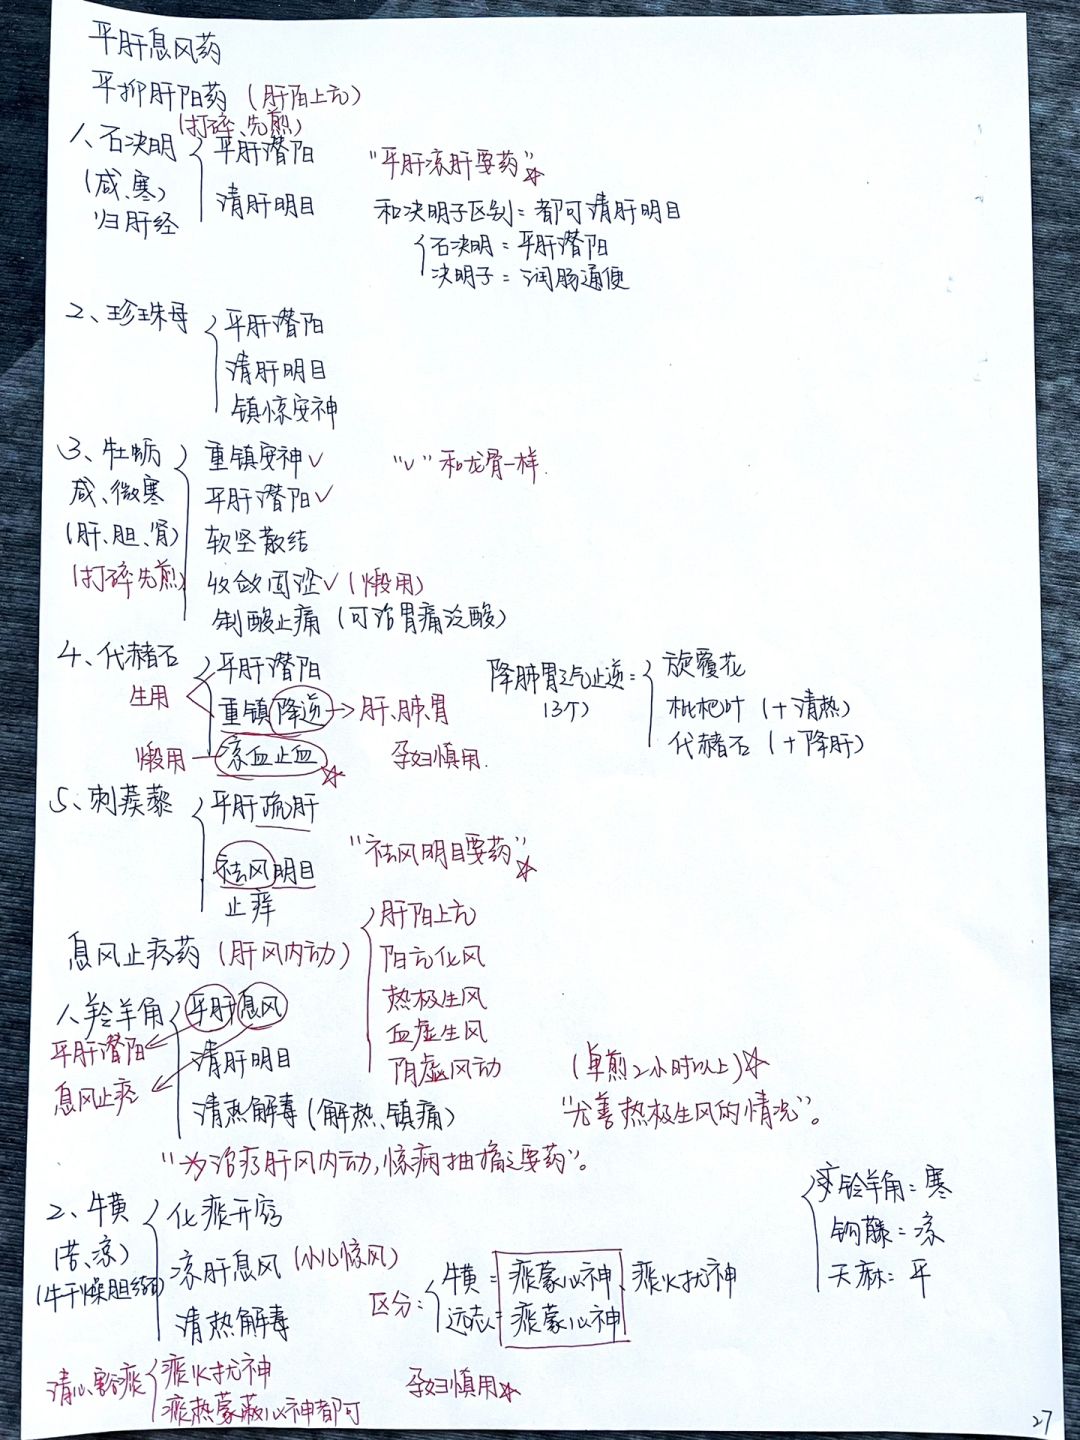 平肝息风药
平抑肝阳药（肝阳上亢）
（打碎、先煎）
1、石决明 平肝潜阳 “平肝凉肝要药”☆
（咸、寒） 清肝明目 和决明子区别：都可清肝明目
归肝经 石决明：平肝潜阳
决明子：润肠通便
2、珍珠母 平肝潜阳
清肝明目
镇惊安神
3、牡蛎 重镇安神✓ “✓”和龙骨一样.
咸、微寒 平肝潜阳✓
（肝、胆、肾） 软坚散结
（打碎先煎） 收敛固涩✓（煅用）
制酸止痛（可治胃痛泛酸）
4、代赭石 平肝潜阳 降肺胃之气止逆： 旋覆花
生用 重镇降逆→肝、肺、胃 （3个） 枇杷叶（+清热）
煅用 凉血止血☆ 孕妇慎用. 代赭石（+降肝）
5、刺蒺藜 平肝疏肝
祛风明目 “祛风明目要药”☆
止痒
息风止痉药（肝风内动） 肝阳上亢
阳亢化风
热极生风
血虚生风
阴虚风动
1、羚羊角 平肝息风
平肝潜阳 清肝明目 （单煎2小时以上）☆
息风止痉 清热解毒（解热、镇痛） “尤善热极生风的情况”。
“为治疗肝风内动，惊痫抽搐之要药”。
2、牛黄 化痰开窍 羚羊角：寒
（苦、凉） 凉肝息风（小儿惊风） 钩藤：凉
（牛干燥胆结石） 清热解毒 天麻：平
区分： 牛黄：痰蒙心神、痰火扰神
远志：痰蒙心神
清心、豁痰 痰火扰神 孕妇慎用☆
痰热蒙蔽心神都可
27